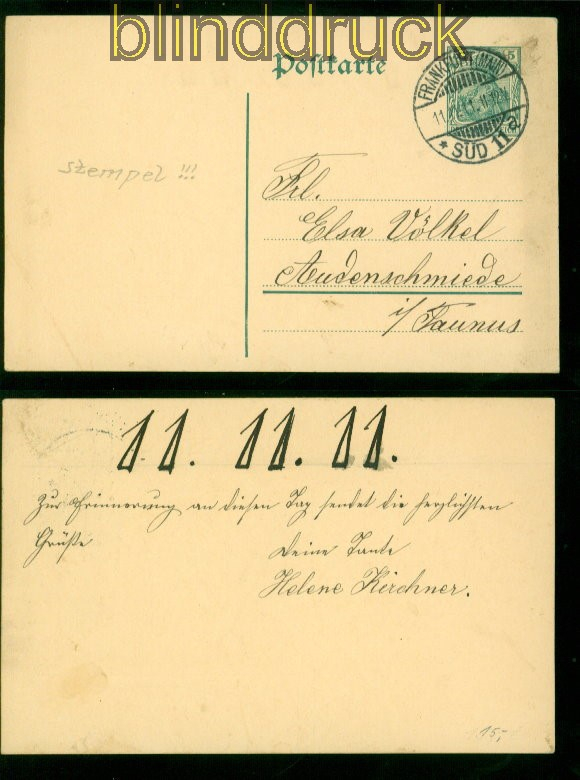 blinddruck
Postkarte
5
FRANKFURT (MAIN)
11. 11. 11. 11-12
* SÜD 11a
szempel !!!
Frl.
Elsa Völkel
Audenschmiede
i/ Taunus
11. 11. 11.
Zur Erinnerung an diesen Tag sendet die herzlichsten
Grüße
Deine Tante
Helene Kirchner.
15,-